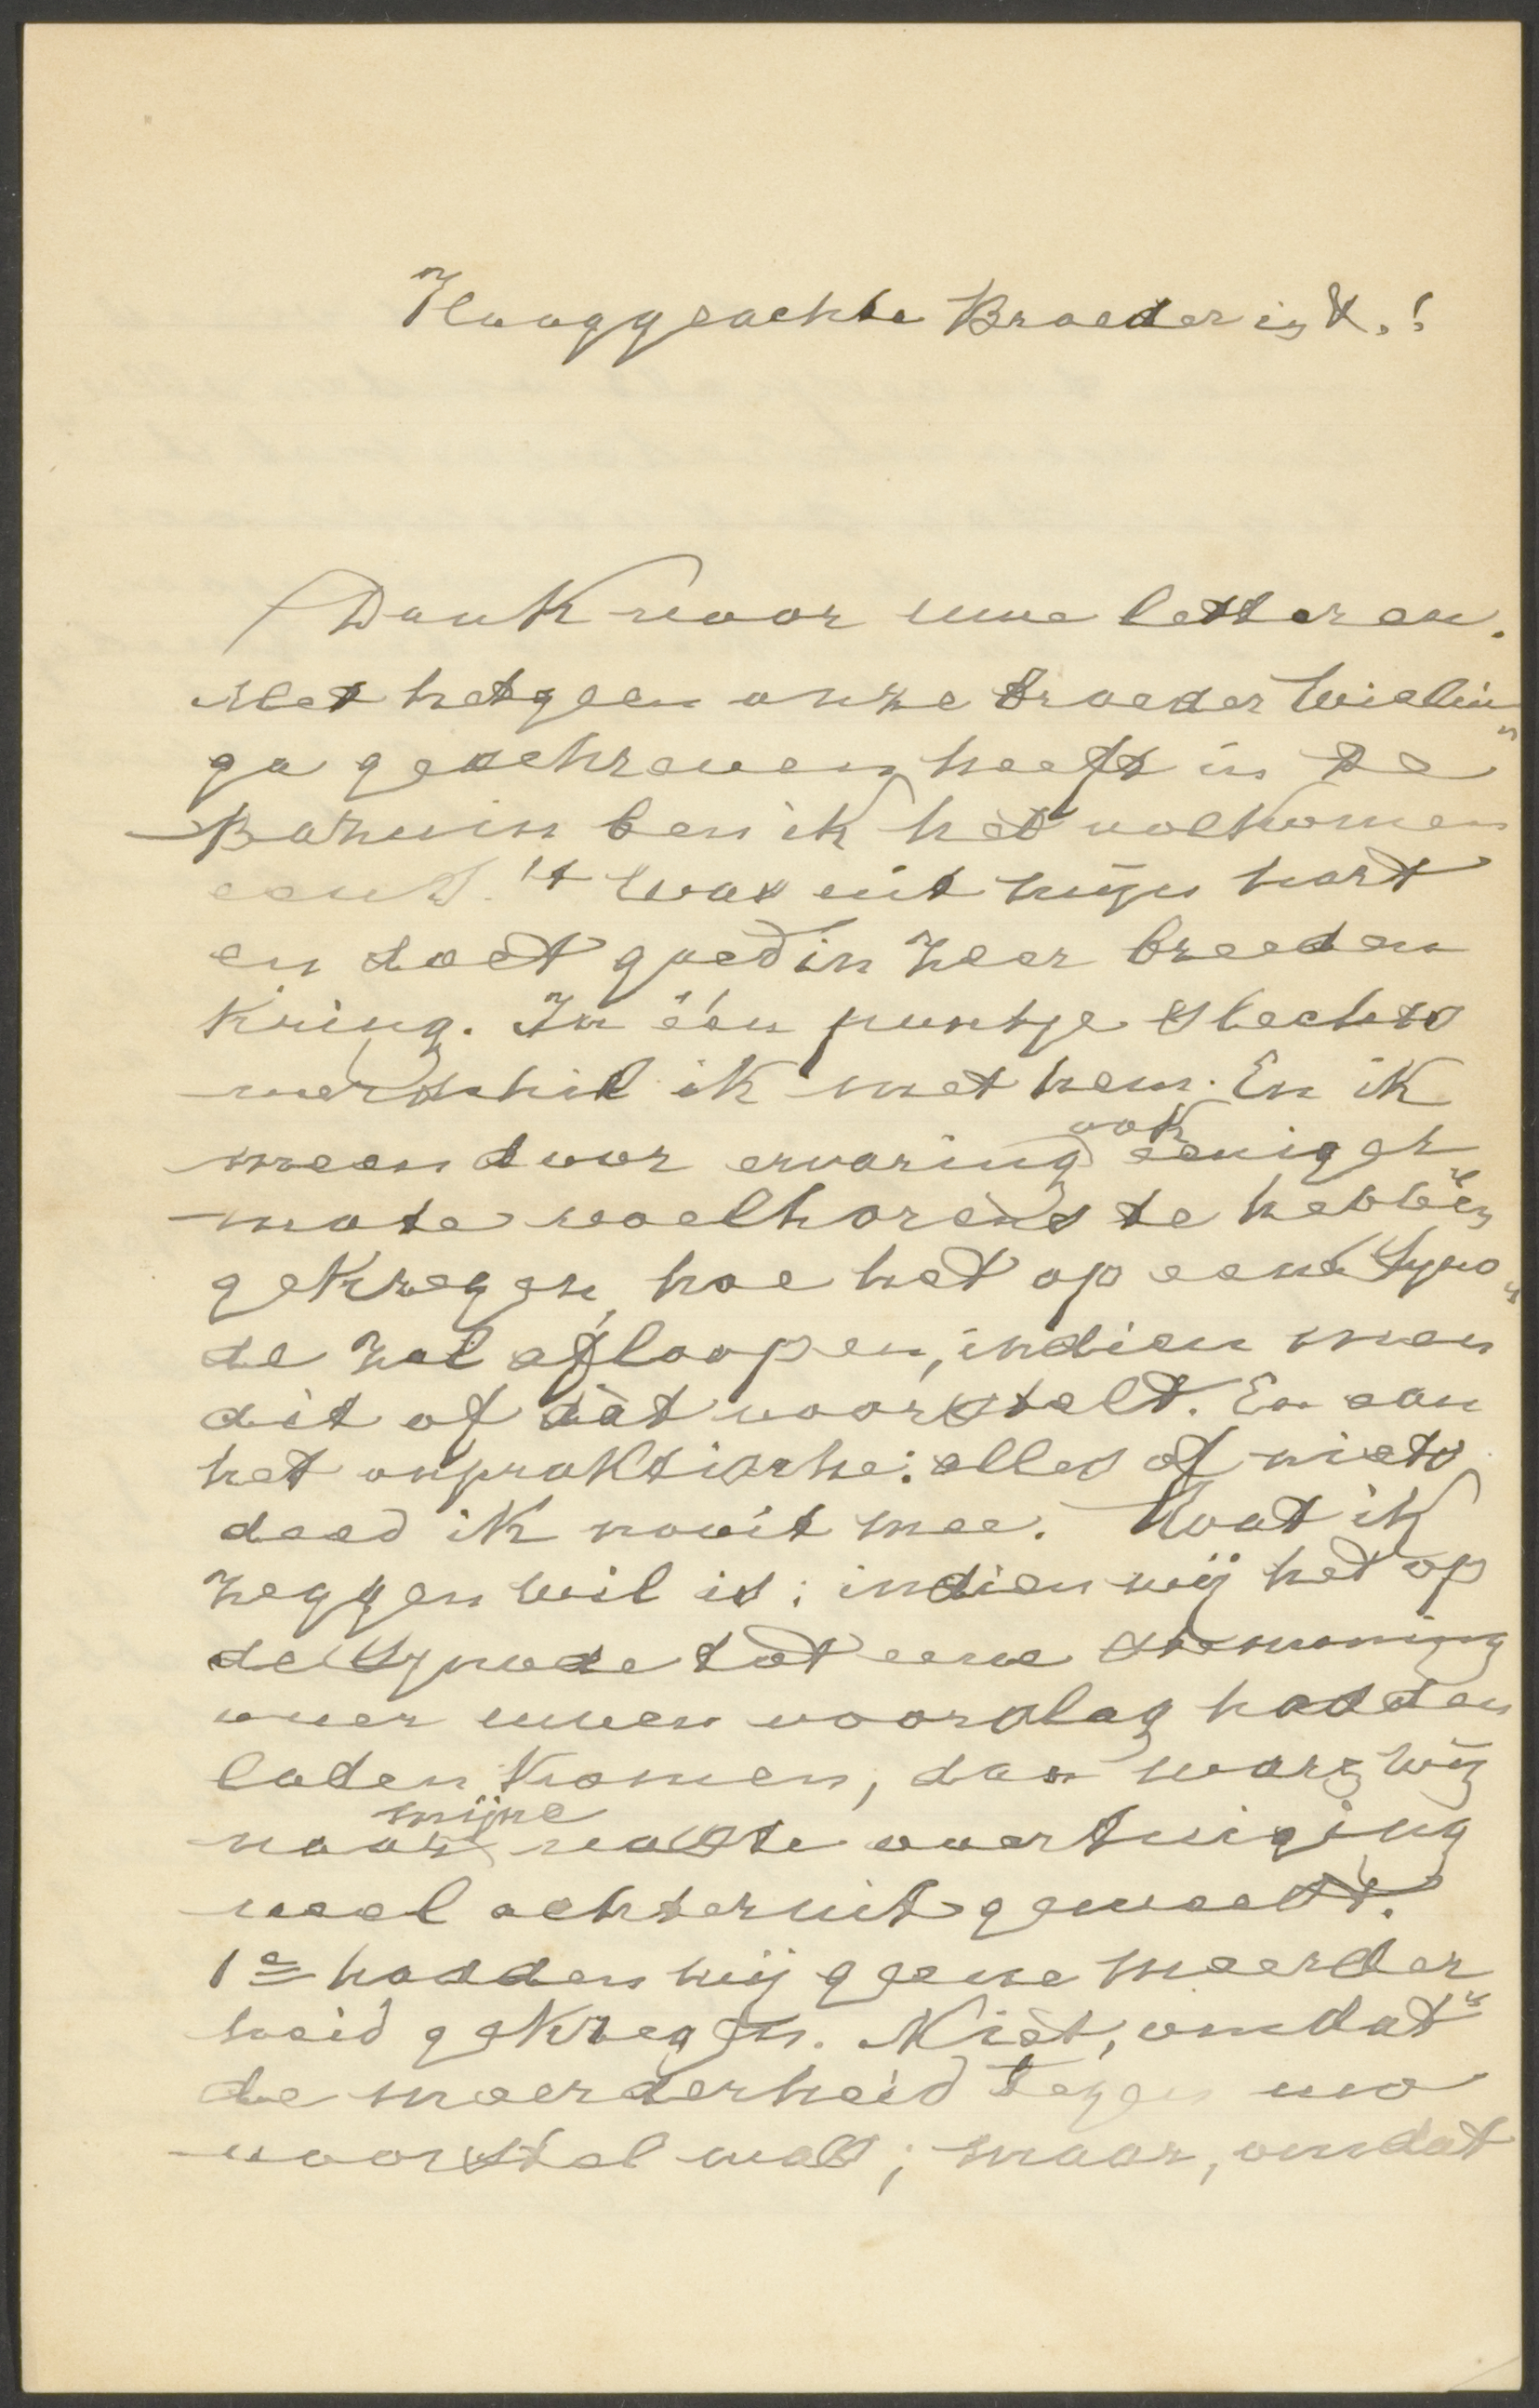 Hooggeachte Broeder in X.!
Dank voor uwe letteren.
Met hetgeen onze broeder Wielin„
ga geschreven heeft in De
Bazuin ben ik het volkomen
eens. 't Was uit mijn hart
en doet goed in zeer breeden
kring. In één puntje slechts
verschil ik met hem. En ik
meen door ervaring ook eeniger
mate voelhorens te hebben
gekregen, hoe het op eene Syno„
de zal afloopen, indien men
dit of dàt voorstelt. En aan
het onpraktische: alles of niets
deed ik nooit mee. Wat ik
zeggen wil is: indien wij het op
de Synode tot eene stemming
over uwen voorslag hadden
laten komen, dan waren wij
naar mijne vaste overtuiging
veel achteruit geweest.
1e hadden wij geene meerder„
heid gekregen. Niet, omdat
de meerderheid tegen uw
voorstel was; maar, omdat